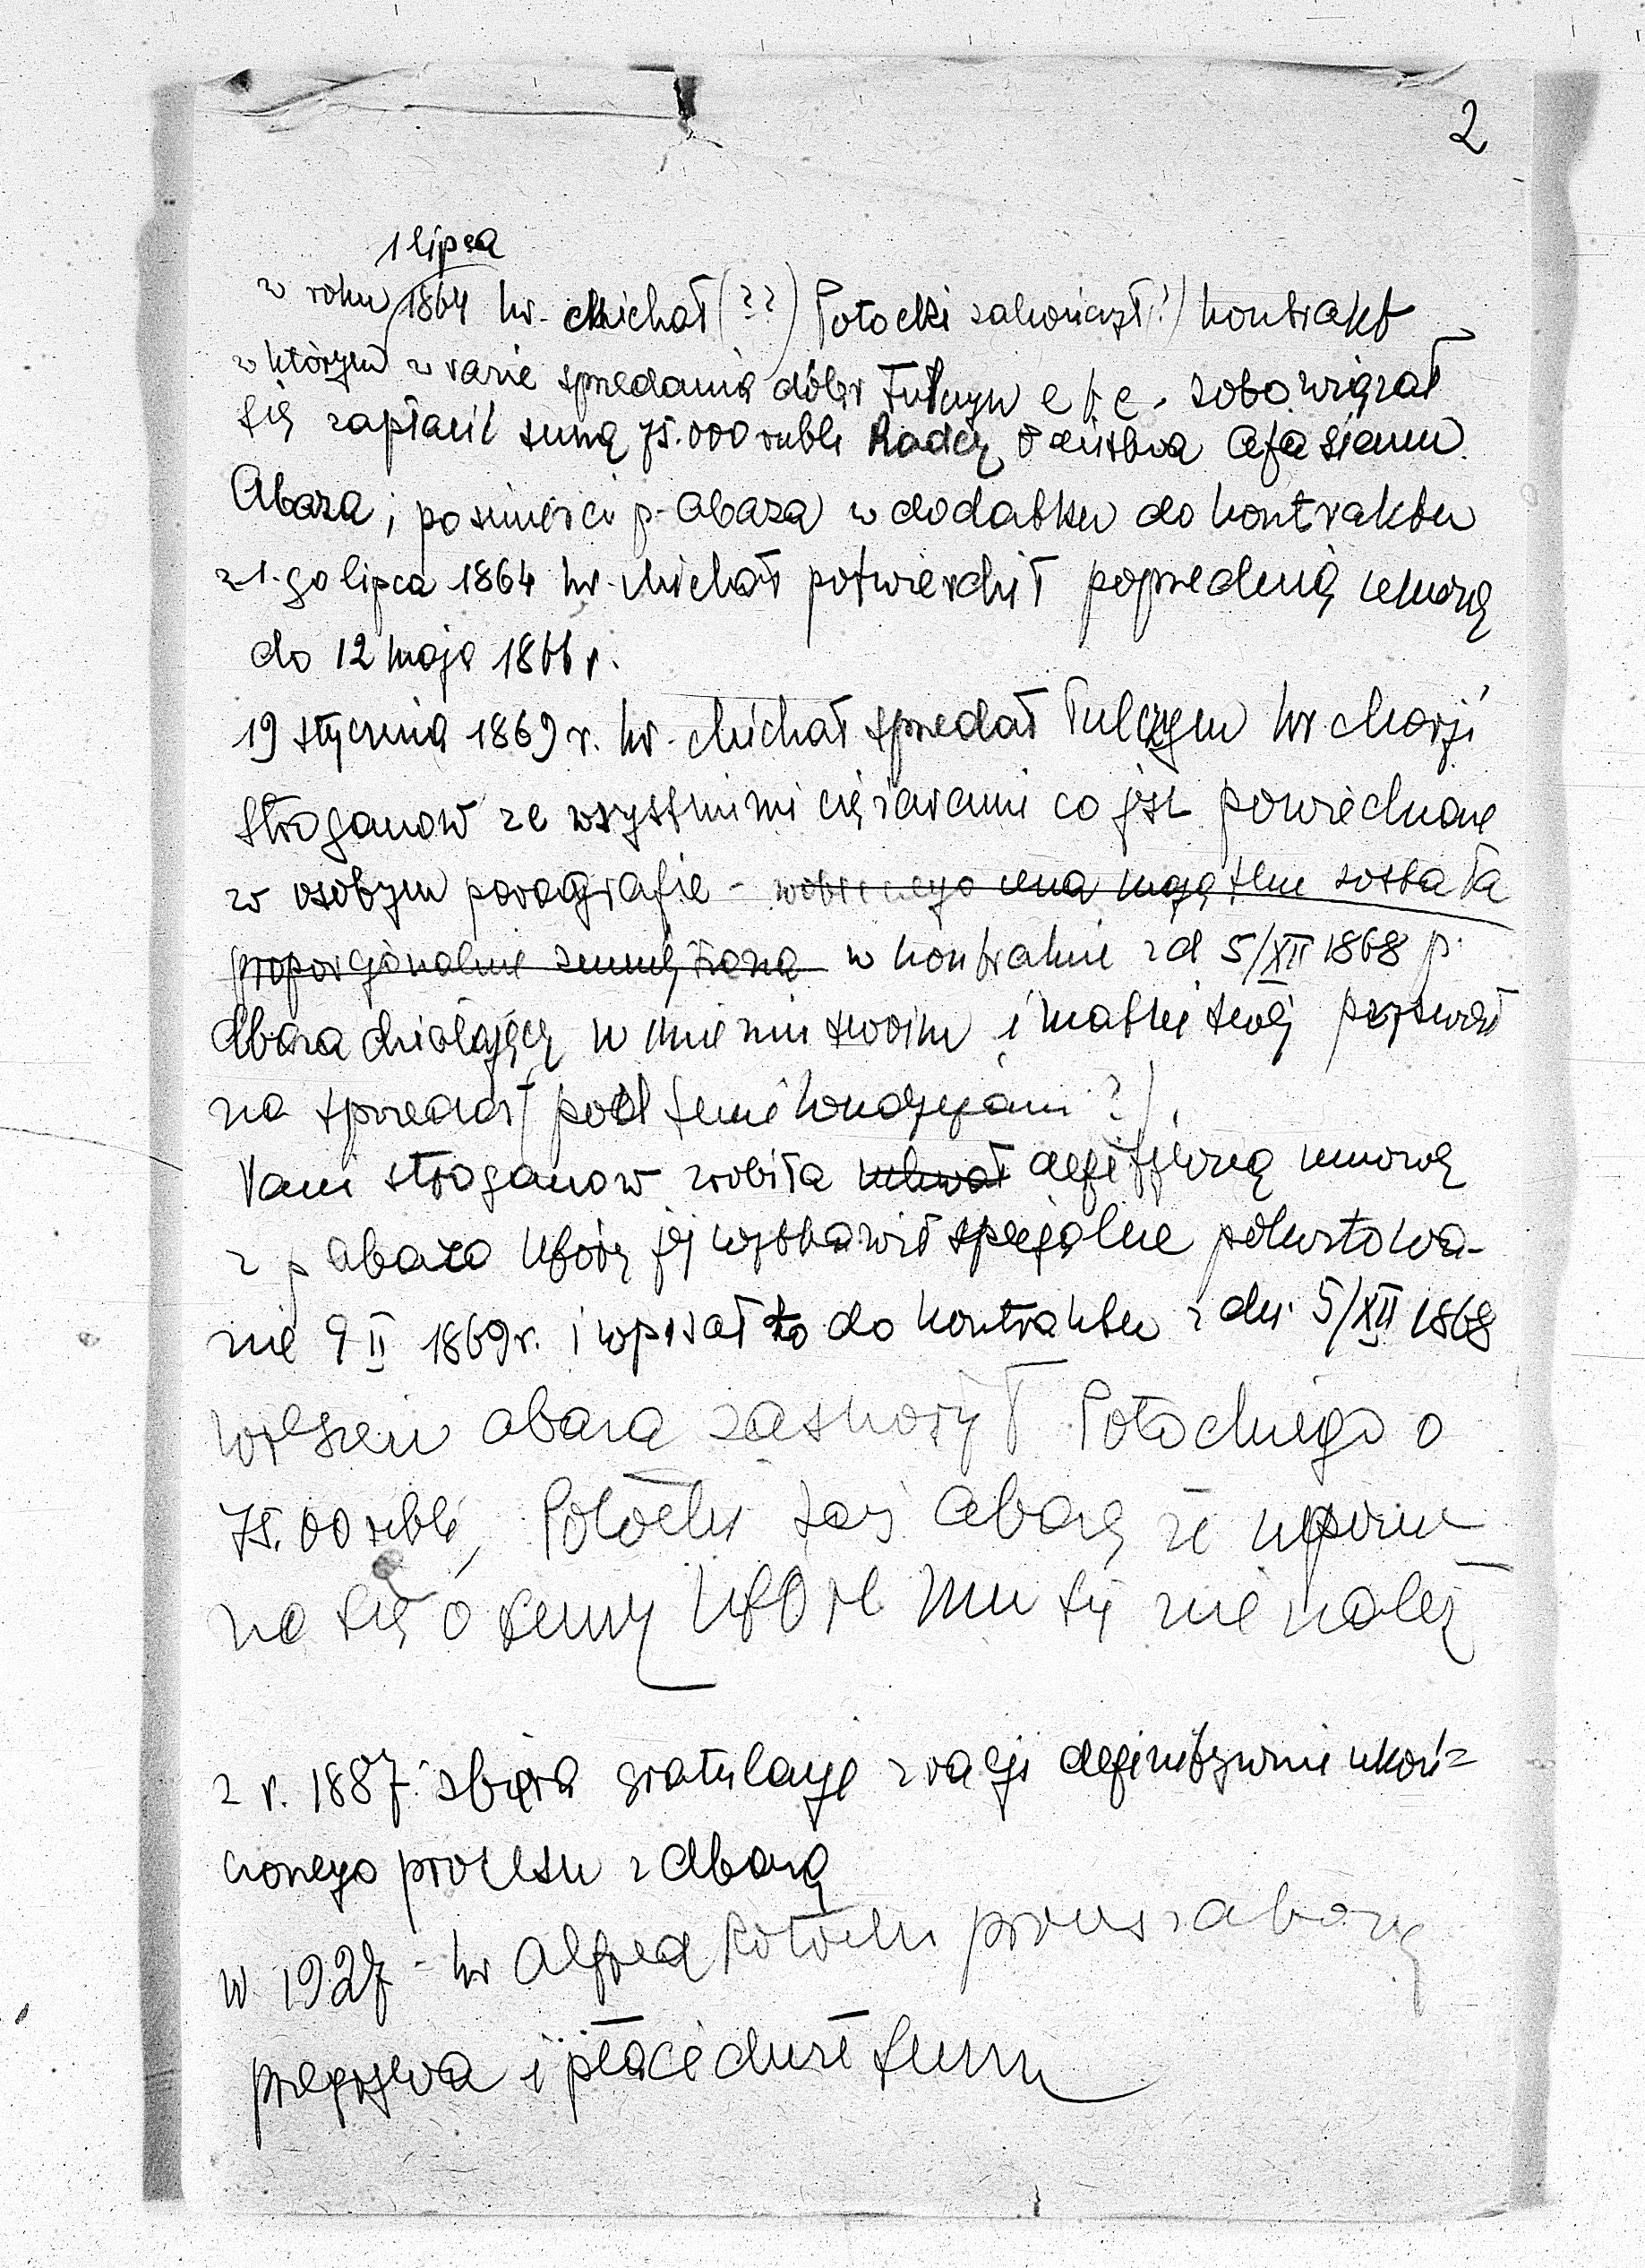 2
1 lipca
w roku 1864 hr. Michał (??) Potocki zakończył(?) kontrakt
w którym w razie spredania dóbr Tulczyn etc. zobowiązał
się zapłacić sumę 75.000 rubli Radcy Państwa
Abaza; po śmierci p. Abaza w dodatku do kontraktu
z 1.go lipca 1864 hr. Michał potwierdził poprzednią umowę
do 12 maja 1866 r.
19 stycznia 1869 r. hr. Michał spredał Tulczyn hr Marji
Stroganow ze wszystkimi ciężarami co jest powiedziane
w osobym paragrafie - wobec czego cena majątku została
proporcjonalnie zmniejszona w kontrakcie z d 5/XII 1868 p.
Abaza działający w imieniu swoim i matki swej przyzwolił
na sprzedaż (pod temi kondycjami?)
Pani Stroganow zrobiła definitywną umowę
z p Abaza który jej wystawił specjalne pokwitowa-
nie 9 II 1869 r. i wpisał to do kontraktu z dn. 5/XII 1868
wreszcie Abaza zaskarżył Potockiego o
75.00 rubli, Potocki zaś Abazę że upomi
na się o sumy które mu się nie należą
z r. 1887 zbiera gratulacje z racji definitywnie ukoń=
czonego procesu z Abazą
w 1927 - hr Alfred Potocki proces z Abazą
przegrywa i płaci duże sumy